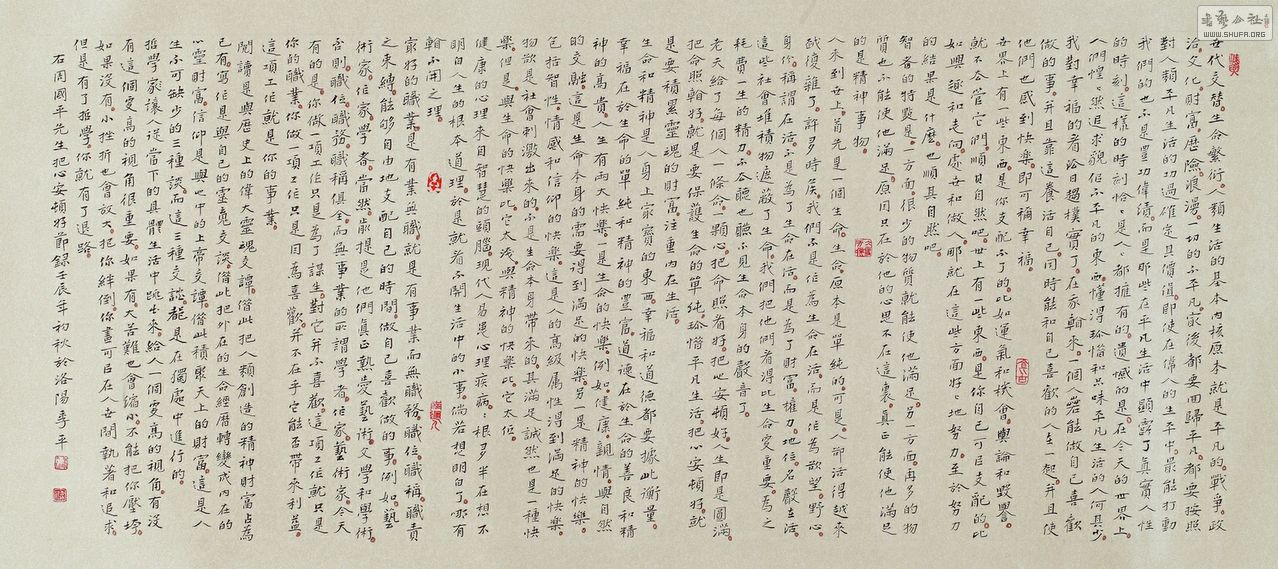 世代交替。生命繁衍。人類生活的基本內核原本就是平凡的。戰爭。政
治。文化。財富。歷險。浪漫。一切的不平凡。最後都要回歸平凡。都要按照
對人類平凡生活的功過確定其價值。即使在偉人的生平中。最能打動
我們的也不是豐功偉績。而是那些在平凡生活中顯露了真實人性
的時刻。這樣的時刻恰恰是人人都擁有的。遺憾的是。在今天的世界上。
人們惶惶然追求貌似不平凡的東西。懂得珍惜和品味平凡生活的人何其少。
我對幸福的看法日趨樸實了。在我看來。一個人若能做自己喜歡
做的事。并且靠這養活自己。同時能和自己喜歡的人在一起。并且使
他們也感到快樂。即可稱幸福。
世界上有一些東西。是你支配不了的。比如運氣和機會。輿論和毀譽。
就不去管它們。順其自然吧。世上有一些東西。是你自己可以支配的。比
如興趣和志向。處世和做人。那就在這些方面好好地努力。至於努力
的結果是什麼。也順其自然吧。
智者的特點是。一方面很少的物質就能使他滿足。另一方面再多的物
質也不能使他滿足。原因只在於他的心思不在這裏。真正能使他滿足
的是精神事物。
人來到世上。首先是一個生命。生命原本是單純的。可是。人卻活得越來
越復雜了。許多時候。我們不是作為生命在活。而是作為欲望。野心。
身份。稱謂在活。不是為了生命在活。而是為了財富。權力。地位。名聲在活。
這些社會堆積物遮蔽了生命。我們把他們看得比生命更重要。為之
耗費一生的精力。不去聽也聽不見生命本身的聲音了。
老天給了每個人一條命。一顆心。把命照看好。把心安頓好。人生即是圓滿。
把命照看好。就是要保護生命的單純。珍惜平凡生活。把心安頓好。就
是要積累靈魂的財富。注重內在生活。
生命和精神是人身上最寶貴的東西。幸福和道德都要據此衡量。
幸福在於生命的單純和精神的豐富。道德在於生命的善良和精
神的高貴。人生有兩大快樂。一是生命的快樂。例如健康。親情。與自然
的交融。這是生命本身的需要得到滿足的快樂。另一是精神的快樂。
包括智性。情感和信仰的快樂。這是人的高級屬性得到滿足的快樂。
物欲是社會刺激出來的。不是生命本身帶來的。其滿足誠然也是一種快
樂。但是。與生命的快樂比。它太淺。與精神的快樂比。它太低。
健康的心理來自智慧的頭腦。現代人易患心理疾病。根多半在想不
明白人生的根本道理。於是就看不開生活中的小事。倘若想明白了。哪有
看不開之理。
最好的職業是有業無職。就是有事業。而無職務。職位。職稱。職責
之束縛。能夠自由地支配自己的時間。做自己喜歡做的事。例如藝
術家。作家。學者。當然。前提是他們真正熱愛藝術。文學和學術。
否則。職位。職務。職稱俱全而無事業的所謂學者。作家。藝術家。今天
有的是。你做一項工作。只是為了謀生。對它并不喜歡。這項工作就只是
你的職業。你做一項工作。只是因為喜歡。并不在乎它能否帶來利益。
這項工作就是你的事業。
閱讀是與歷史上的偉大靈魂交談。借此把人類創造的精神財富占為
己有。寫作是與自己的靈魂交談。借此把外在的生命經歷轉變成內在的
心靈財富。信仰是與心中的上帝交談。借此積聚天上的財富。這是人
生不可缺少的三種交談。而這三種交談都是在獨處中進行的。
哲學家讓人從當下的具體生活中跳出來。給人一個更高的視角。有沒
有這個更高的視角很重要。如果有。大苦難也會縮小。不能把你壓垮。
如果沒有。小挫折也會放大。把你絆倒。你盡可以在人世間執著和追求。
但是有了哲學。你就有了退路。
右周國平先生把心安頓好節錄。壬辰年初秋於洛陽。季平
书艺公社
WWW.SHUFA.ORG